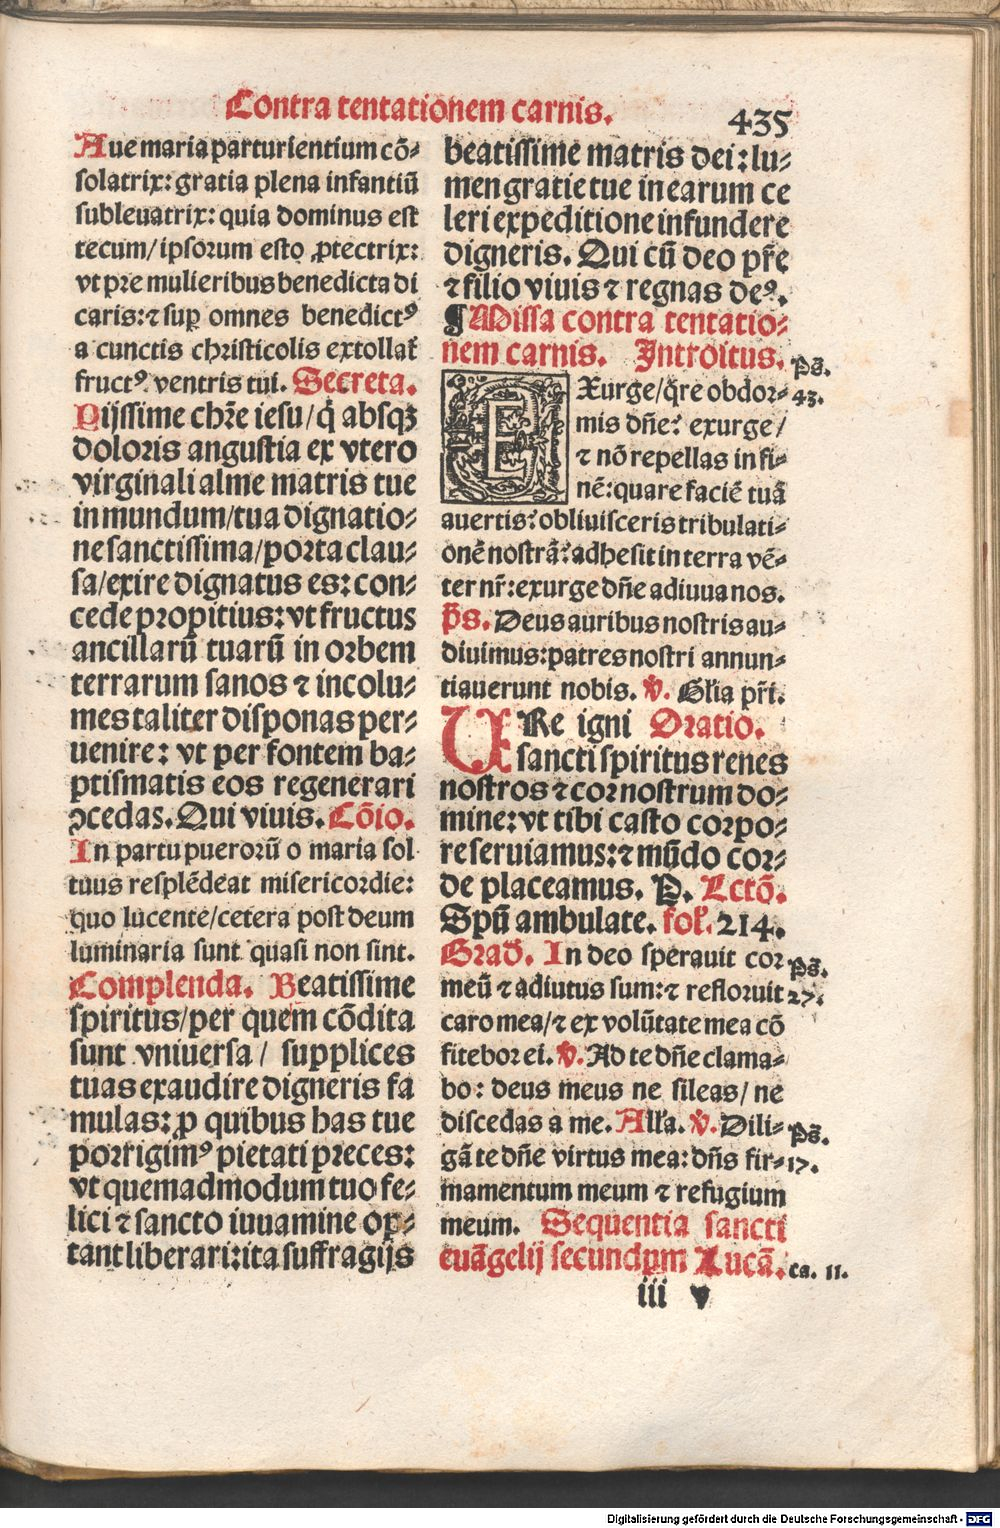 Contra tentationem carnis.
435
Aue maria parturientium cō⸗
solatrix: gratia plena infantiū
subleuatrix: quia dominus est
tecum/ ipsorum esto ꝓtectrix:
vt pre mulieribus benedicta di
caris: ⁊ sup̄ omnes benedictꝰ
a cunctis christicolis extollat᷑
fructꝰ ventris tui. Secreta.
Pijssime chr̄e iesu/ q̇ absqꝫ
doloris angustia ex vtero
virginali alme matris tue
in mundum/ tua dignatio⸗
ne sanctissima/ porta clau⸗
sa/ exire dignatus es: con⸗
cede propitius: vt fructus
ancillarū tuarū in orbem
terrarum sanos ⁊ incolu⸗
mes taliter disponas per⸗
uenire: vt per fontem ba⸗
ptismatis eos regenerari
ꝯcedas. Qui viuis. Cōio.
In partu puerorū o maria sol
tuus resplēdeat misericordie:
quo lucente/ cetera post deum
luminaria sunt quasi non sint.
Complenda. Beatissime
spiritus/ per quem cōdita
sunt vniuersa/ supplices
tuas exaudire digneris fa
mulas: ꝓ quibus has tue
porrigimꝰ pietati preces:
vt quemadmodum tuo fe⸗
lici ⁊ sancto iuuamine op⸗
tant liberari: ita suffragijs
beatissime matris dei: lu⸗
men gratie tue in earum ce
leri expeditione infundere
digneris. Qui cū deo pr̄e
⁊ filio viuis ⁊ regnas deꝰ.
¶ Missa contra tentatio⸗
nem carnis. Introitus.
ps̄.
43.
EXurge/ q̄re obdor⸗
mis dn̄e? exurge/
⁊ nō repellas in fi⸗
nē: quare faciē tuā
auertis? obliuisceris tribulati⸗
onē nostrā? adhesit in terra vē⸗
ter nr̄: exurge dn̄e adiuua nos.
p̄s. Deus auribus nostris au⸗
diuimus: patres nostri annun⸗
tiauerunt nobis. ꝟ. Gl̄ia pr̄i.
URe igni Oratio.
sancti spiritus renes
nostros ⁊ cor nostrum do⸗
mine: vt tibi casto corpo⸗
re seruiamus: ⁊ mūdo cor⸗
de placeamus. P. Lctō.
Spū ambulate. fol. 214.
Grad̄. In deo sperauit cor
ps̄.
27.
meū ⁊ adiutus sum: ⁊ refloruit
caro mea/ ⁊ ex volūtate mea cō
fitebor ei. ꝟ. Ad te dn̄e clama⸗
bo: deus meus ne sileas/ ne
discedas a me. All̄a. ꝟ. Dili⸗
ps̄.
17.
gā te dn̄e virtus mea: dn̄s fir⸗
mamentum meum ⁊ refugium
meum. Sequentia sancti
euāgelij secundum Lucā.
ca. 11.
iii v
Digitalisierung gefördert durch die Deutsche Forschungsgemeinschaft - DFG